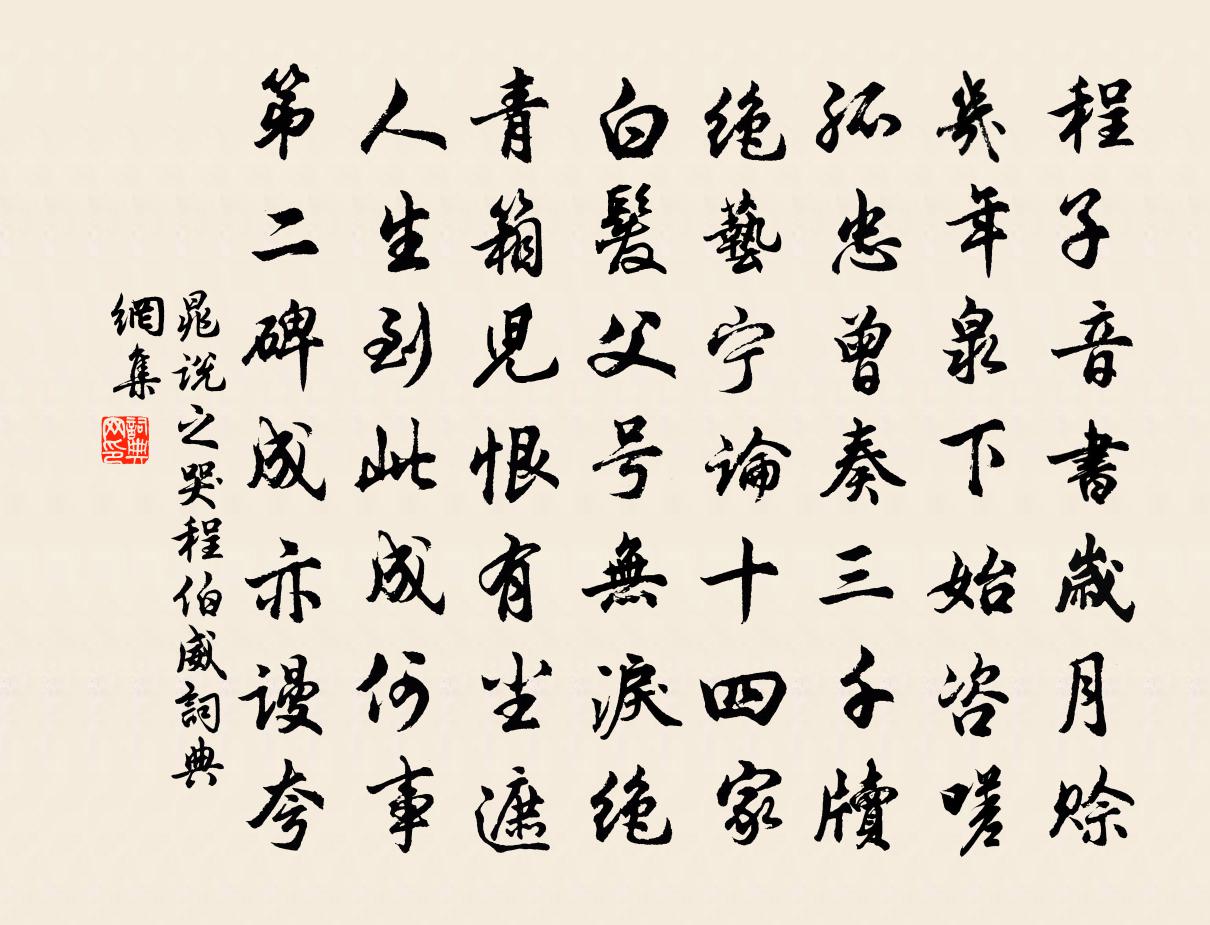 程子音書歲月賒
幾年泉下始咨嗟
孤忠曾奏三千牘
绝藝宁論十四家
白髮父号無淚绝
青箱児恨有坐遮
人生到此成何事
第二碑成亦谩夸
晁说之哭程伯威詞典
網集
詞典
网印